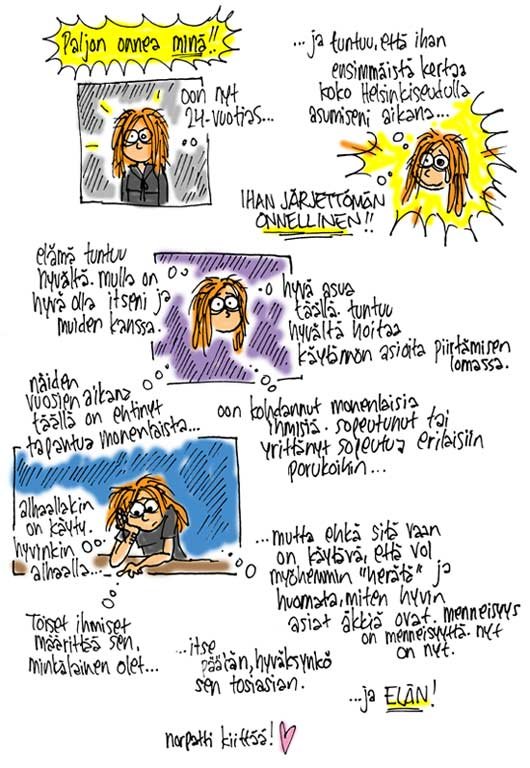 Paljon onnea minä!!
oon nyt
24-vuotias...
...ja tuntuu, että ihan
ensimmäistä kertaa
koko Helsinkiseudulla
asumiseni aikana...
IHAN JÄRJETTÖMÄN
ONNELLINEN!!
elämä tuntuu
hyvältä. mulla on
hyvä olla itseni ja
muiden kanssa.
hyvä asua
täällä. tuntuu
hyvältä hoitaa
käytännön asioita piirtämisen
lomassa.
näiden
vuosien aikana
täällä on ehtinyt
tapahtua monenlaista...
oon kohdannut monenlaisia
ihmisiä. sopeutunut tai
yrittänyt sopeutua erilaisiin
porukoihin...
alhaallakin
on käyty.
hyvinkin
alhaalla...
...mutta ehkä sitä vaan
on käytävä, että voi
myöhemmin "herätä" ja
huomata, miten hyvin
asiat äkkiä ovat. menneisyys
on menneisyyttä. nyt
on nyt.
Toiset ihmiset
määrittää sen,
minkälainen olet...
...itse
päätän, hyväksynkö
sen tosiasian.
...ja ELÄN!
norpatti kiittää!